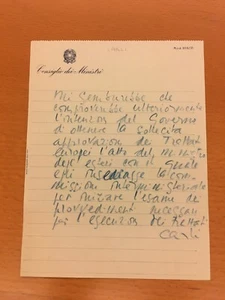 Consiglio dei Ministri
Mi comproverebbe che
comproverebbe ulteriormente
l'intenzione del Governo
di ottenere la sollecita
approvazione dei Trattati
europei l'atto del Ministro
degli esteri con il quale
egli insediasse la com-
missione interministeriale
per iniziare l'esame dei
provvedimenti necessari
per l'esecuzione dei Trattati
Carli